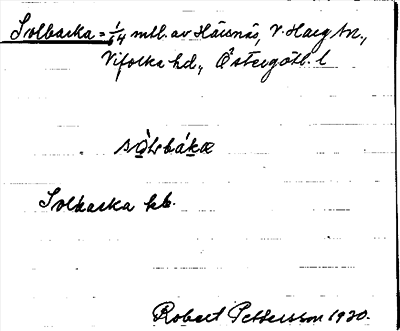 Solbacka = 1/64 mtl. av Härsnäs, V. Harg sn.,
Vifolka hd., Östergötl. l
sòlbákæ
Solbacka kb.
Robert Pettersson 1930.